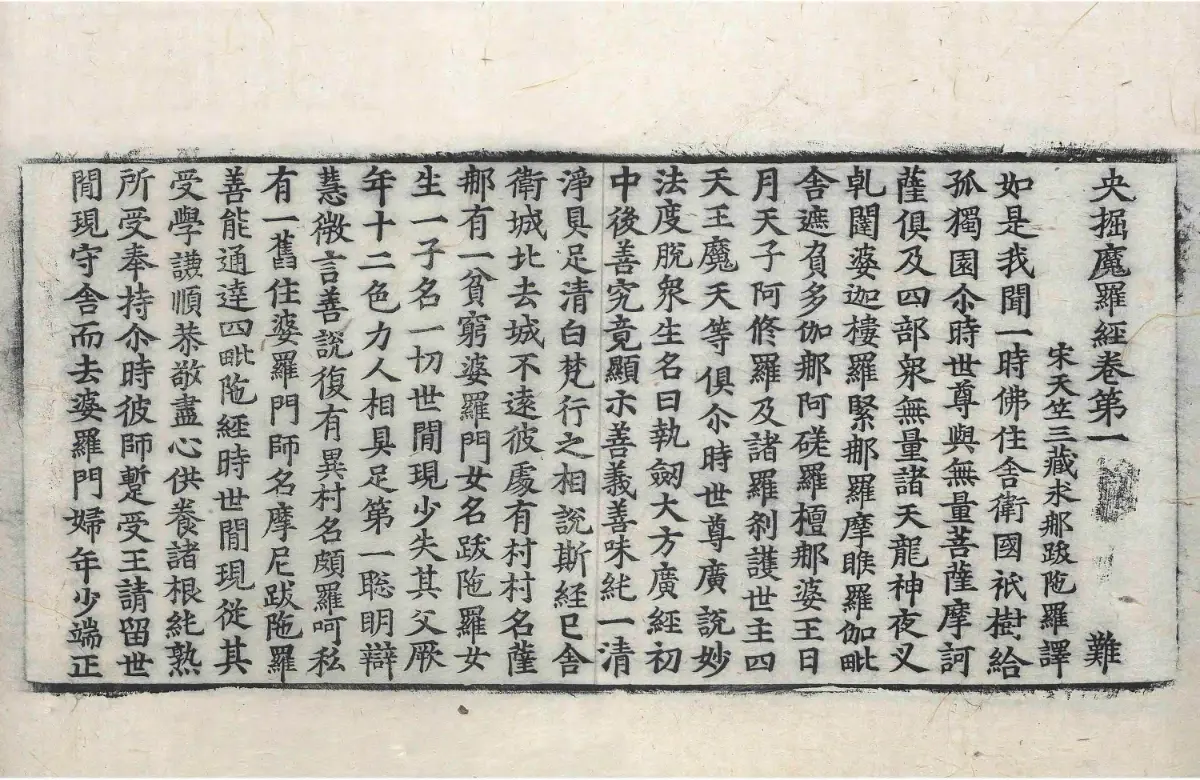 央掘魔羅經卷第一 難
宋天竺三藏求那跋陁羅譯
如是我聞一時佛住舍衛國祇樹給
孤獨園尒時世尊與無量菩薩摩訶
薩俱及四部衆無量諸天龍神夜叉
乹闥婆迦樓羅緊那羅摩睺羅伽毗
舍遮負多伽那阿磋羅檀那婆王日
月天子阿修羅及諸羅刹護世主四
天王魔天等俱尒時世尊廣說妙
法度脫衆生名曰執劔大方廣經初
中後善究竟顯示善義善味純一清
淨具足清白梵行之相說斯經已舍
衛城北去城不遠彼處有村村名薩
那有一貧窮婆羅門女名跋陁羅女
生一子名一切世閒現少失其父厥
年十二色力人相具足第一聡明辯
慧微言善說復有異村名頗羅呵私
有一舊住婆羅門師名摩尼跋陁羅
善能通達四毗陁經時世閒現從其
受學謙順恭敬盡心供養諸根純熟
所受奉持尒時彼師蹔受王請留世
閒現守舍而去婆羅門婦年少端正